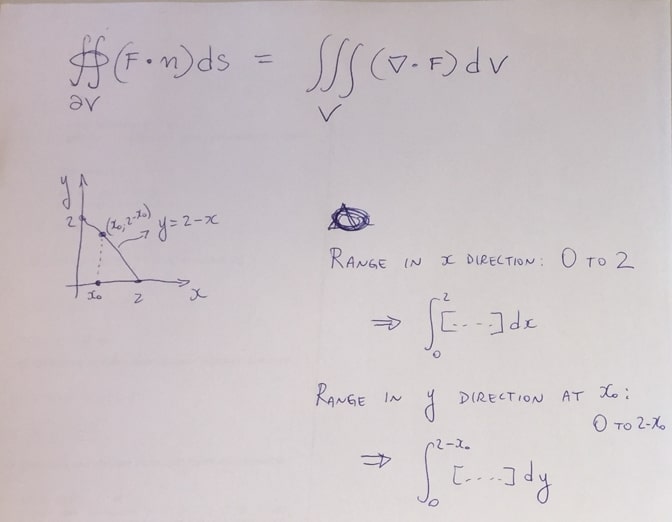 ∯(F·n)ds = ∭(∇·F)dV
∂V V
y
2
(x₀, 2-x₀)
y=2-x
x₀ 2 x
RANGE IN x DIRECTION: 0 TO 2
⇒ ∫₀² [....] dx
RANGE IN y DIRECTION AT x₀:
0 TO 2-x₀
⇒ ∫₀^{2-x₀} [....] dy